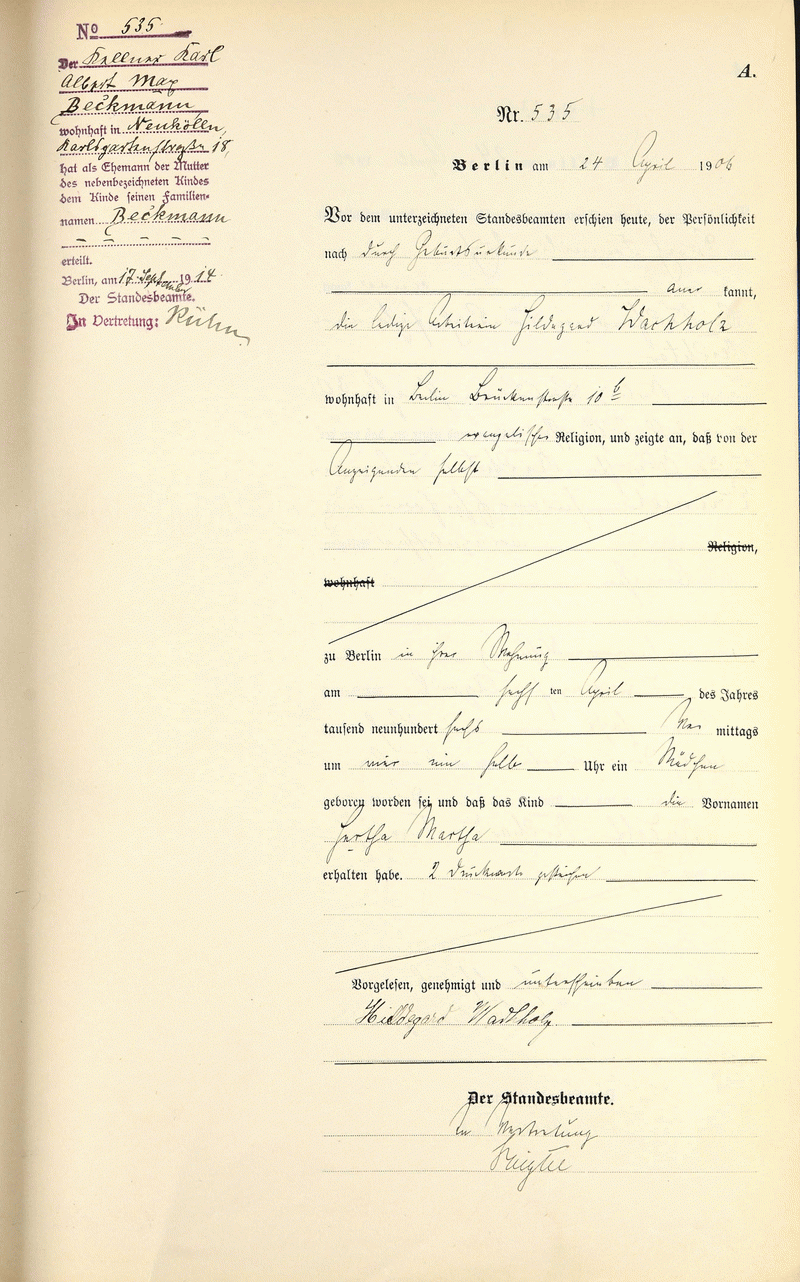 No 535
Der Kellner Karl
Albert Max
Beckmann
wohnhaft in Neukölln,
Karlsgartenstraße 18,
hat als Ehemann der Mutter
des nebenbezeichneten Kindes
dem Kinde seinen Familien-
namen Beckmann
erteilt.
Berlin, am 17. September 1914.
Der Standesbeamte.
In Vertretung: Kühn
A.
Nr. 535
Berlin am 24 April 1906
Vor dem unterzeichneten Standesbeamten erschien heute, der Persönlichkeit
nach durch Geburtsurkunde
aner kannt,
die ledige Arbeiterin Hildegard Wachholz
wohnhaft in Berlin Brückenstraße 10 b
evangelischer Religion, und zeigte an, daß von der
Anzeigenden selbst
Religion,
wohnhaft
zu Berlin in ihrer Wohnung
am sechs ten April des Jahres
tausend neunhundert sechs Vor mittags
um vier ein halb Uhr ein Mädchen
geboren worden sei und daß das Kind die Vornamen
Hertha Martha
erhalten habe. 2 Druckworte gestrichen
Vorgelesen, genehmigt und unterschrieben
Hildegard Wachholz
Der Standesbeamte.
In Vertretung